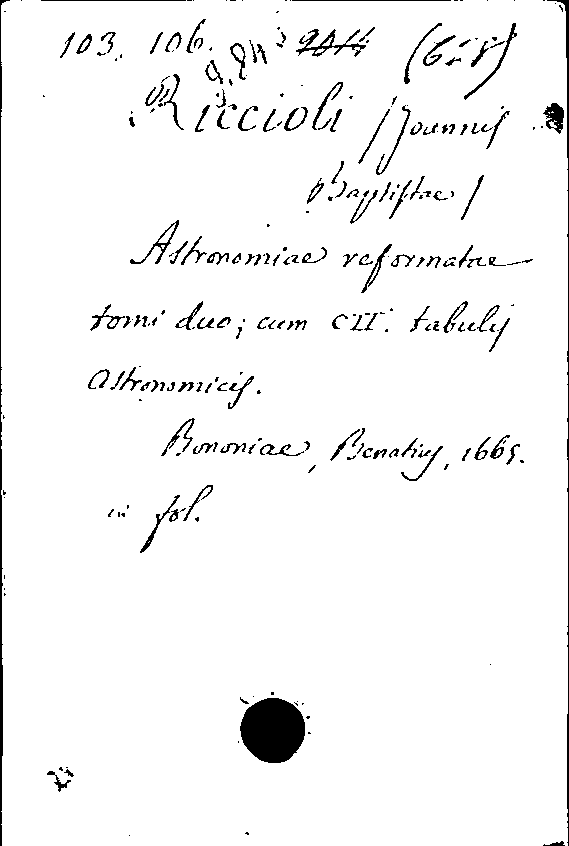 103. 106.
Riccioli /Joannis
Baptistae /
Astronomiae reformatae
tomi duo; cum CII. tabulis
astronomicis.
Bononiae, Benatius, 1665.
in fol.